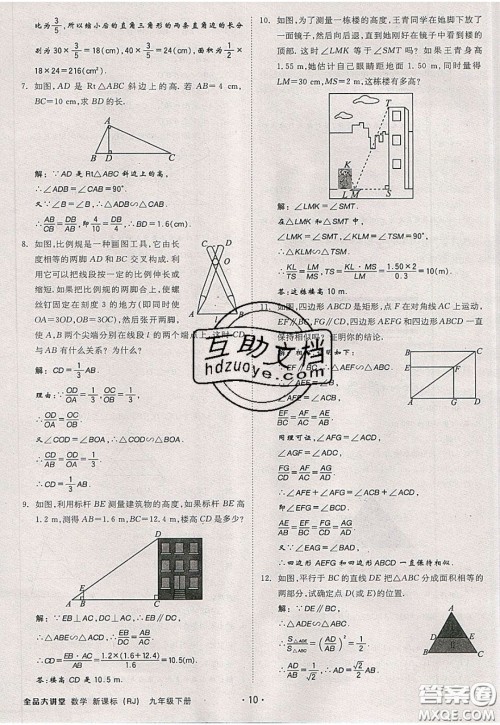 比为3/5,所以缩小后的直角三角形的两条直角边的长分
别为30×3/5=18(cm),40×3/5=24(cm),面积为1/2×
18×24=216(cm²).
7. 如图,AD是Rt△ABC斜边上的高.若AB=4 cm,
BC=10 cm,求BD的长.
A
B D C
解:∵AD是Rt△ABC斜边上的高,
∴∠ADB=∠CAB=90°.
又∵∠B=∠B,∴△ADB∽△CAB.
∴BD/AB=AB/CB,即BD/4=4/10,∴BD=1.6(cm).
8. 如图,比例规是一种画图工具,它由长
度相等的两脚AD和BC交叉构成.利
用它可以把线段按一定的比例伸长或
缩短.如果把比例规的两脚合上,使螺
丝钉固定在刻度3的地方(即同时使
OA=3OD,OB=3OC),然后张开两脚,
使A,B两个尖端分别在线段l的两个端点上,这时CD
与AB有什么关系?为什么?
解:CD=1/3AB.
∵OD/OA=1/3,OC/OB=1/3,
∴OD/OA=OC/OB.
又∵∠COD=∠BOA,∴△COD∽△BOA.
∴CD/AB=OD/OA=1/3.∴CD=1/3AB.
9. 如图,利用标杆BE测量建筑物的高度,如果标杆BE高
1.2 m,测得AB=1.6 m,BC=12.4 m,楼高CD是多少?
解:∵EB⊥AC,DC⊥AC,∴EB∥DC.
∴△ABE∽△ACD.∴EB/DC=AB/AC.
∴CD=EB·AC/AB=1.2×(1.6+12.4)/1.6=10.5(m).
答:楼高CD是10.5 m.
10. 如图,为了测量一栋楼的高度,王青同学在她脚下放了
一面镜子,然后向后退,直到她刚好在镜子中看到楼的
顶部.这时∠LMK等于∠SMT吗?如果王青身高
1.55 m,她估计自己眼睛距地面1.50 m,同时量得
LM=30 cm,MS=2 m,这栋楼有多高?
T
K
L M S
解:∠LMK=∠SMT.
在△LMK和△SMT中,
∵∠LMK=∠SMT,∠KLM=∠TSM=90°,
∴△LMK∽△SMT.
∴KL/TS=LM/MS.∴TS=KL·MS/LM=1.50×2/0.3=10(m).
答:这栋楼高10 m.
11. 如图,四边形ABCD是矩形,点F在对角线AC上运动,
EF∥BC,FG∥CD,四边形AEFG和四边形ABCD一
直保持相似吗?证明你的结论.
∵EF∥BC,∴△AEF∽△ABC.
∴EF/BC=AF/AC=AE/AB.
同理可证,∠AFG=∠ACD,
FG/CD=AF/AC=AG/AD.
∴AE/AB=EF/BC=FG/CD=AG/AD.
又∵∠EFG=∠AFE+∠AFG=∠ACB+∠ACD=∠BCD,
∠AEF=∠ABC,∠AGF=∠ADC,
∠EAG=∠BAD,
∴四边形AEFG和四边形ABCD一直保持相似.
12. 如图,平行于BC的直线DE把△ABC分成面积相等的
两部分,试确定点D(或E)的位置.
解:∵DE∥BC,
∴△ADE∽△ABC.
∴S△ADE/S△ABC=(AD/AB)²=1/2.
∴AD/AB=√2/2.
互助文档
hdzuoye.com
全品大讲堂 数学 新课标(RJ) 九年级下册
·10·
答案圈
MXQE.COM